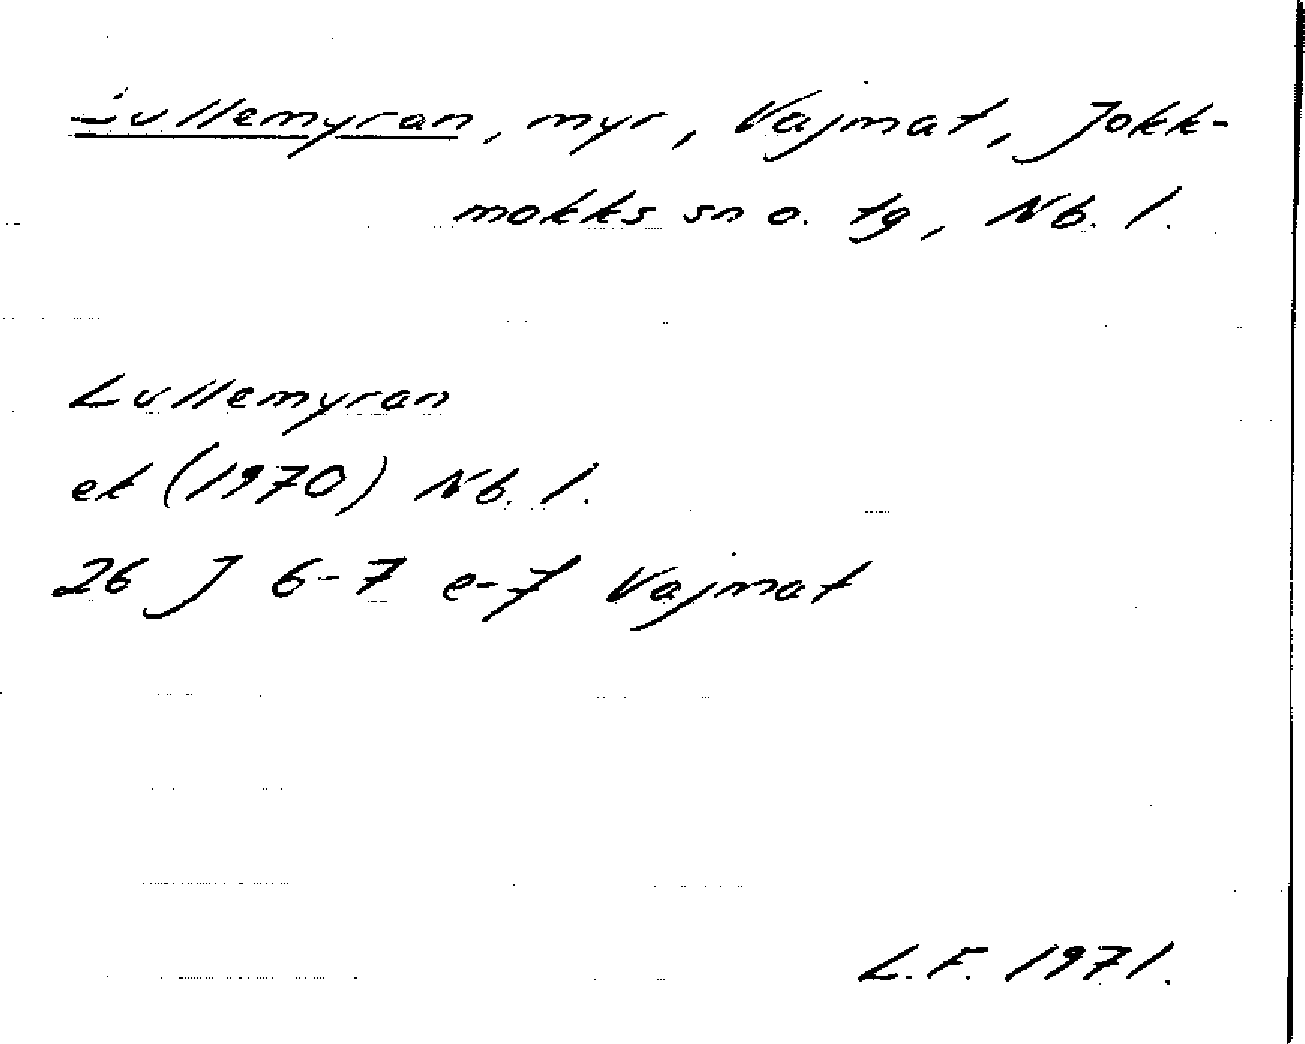 Lullemyran, myr, Vajmat, Jokk-
mokks sn o. tg, Nb. l.
Lullemyran
ek (1970) Nb. l.
26 J 6-7 e-f Vajmat
L.F. 1971.